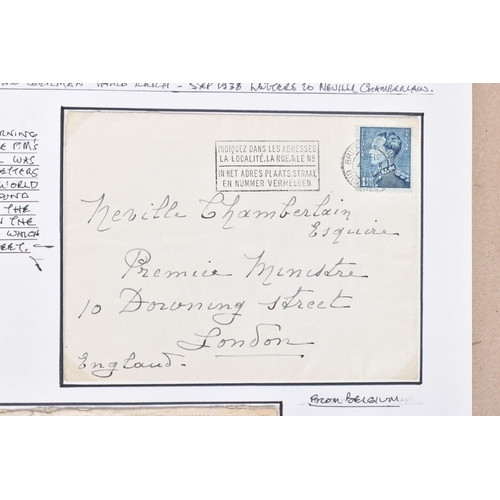 GERMAN THIRD REICH - SEP 1938 LETTERS TO NEVILLE CHAMBERLAIN.
RNING
E P.M'S
L WAS
ETTERS
WORLD
OUND
THE
N THE
WHICH
EET.
INDIQUEZ DANS LES ADRESSES
LA LOCALITÉ, LA RUE & LE No
IN HET ADRES PLAATS, STRAAT
EN NUMMER VERMELDEN
Neville Chamberlain
Esquire
Premier Ministre
10 Downing street
London
England.
FROM BELGIUM.